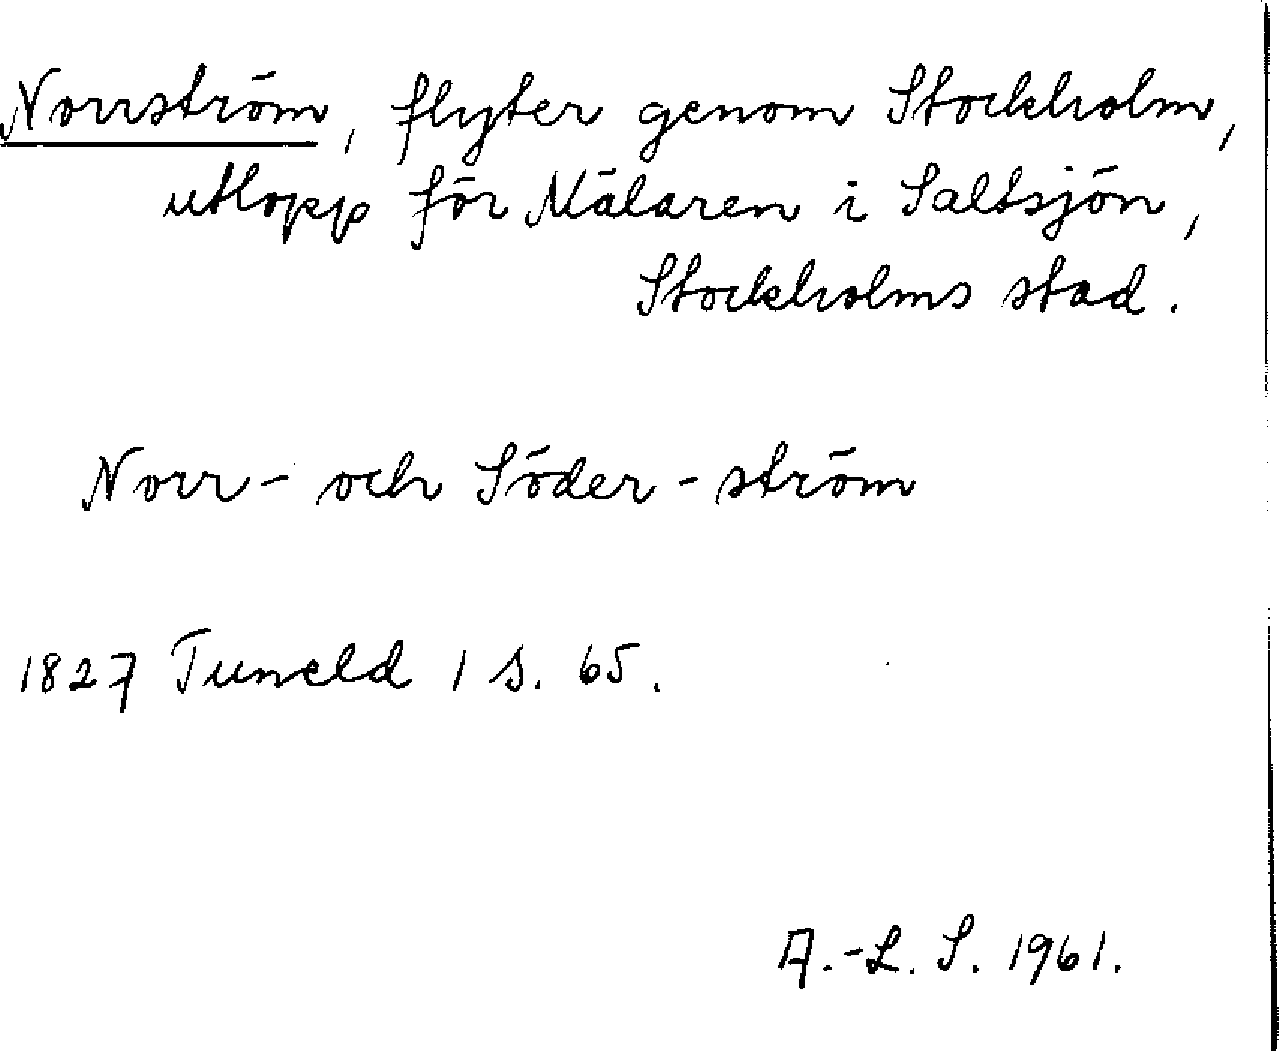 Norrström, flyter genom Stockholm,
utlopp för Mälaren i Saltsjön,
Stockholms stad.
Norr- och Söder-ström
1827 Tuneld 1 s. 65.
A.-L. S. 1961.